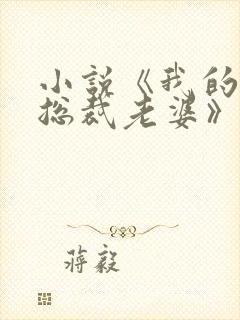 小说《我的
总裁老婆》
蒋毅